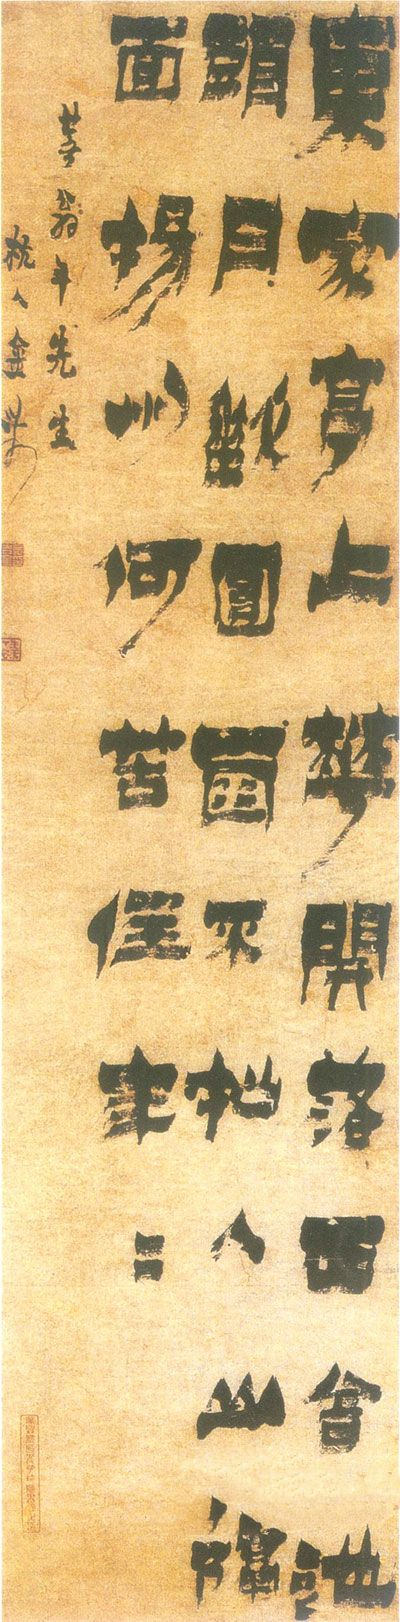 東家亭上華開落西舍池
頭月圓不人山隔
面揚州何苦年〻
翁年先生
杭人金農